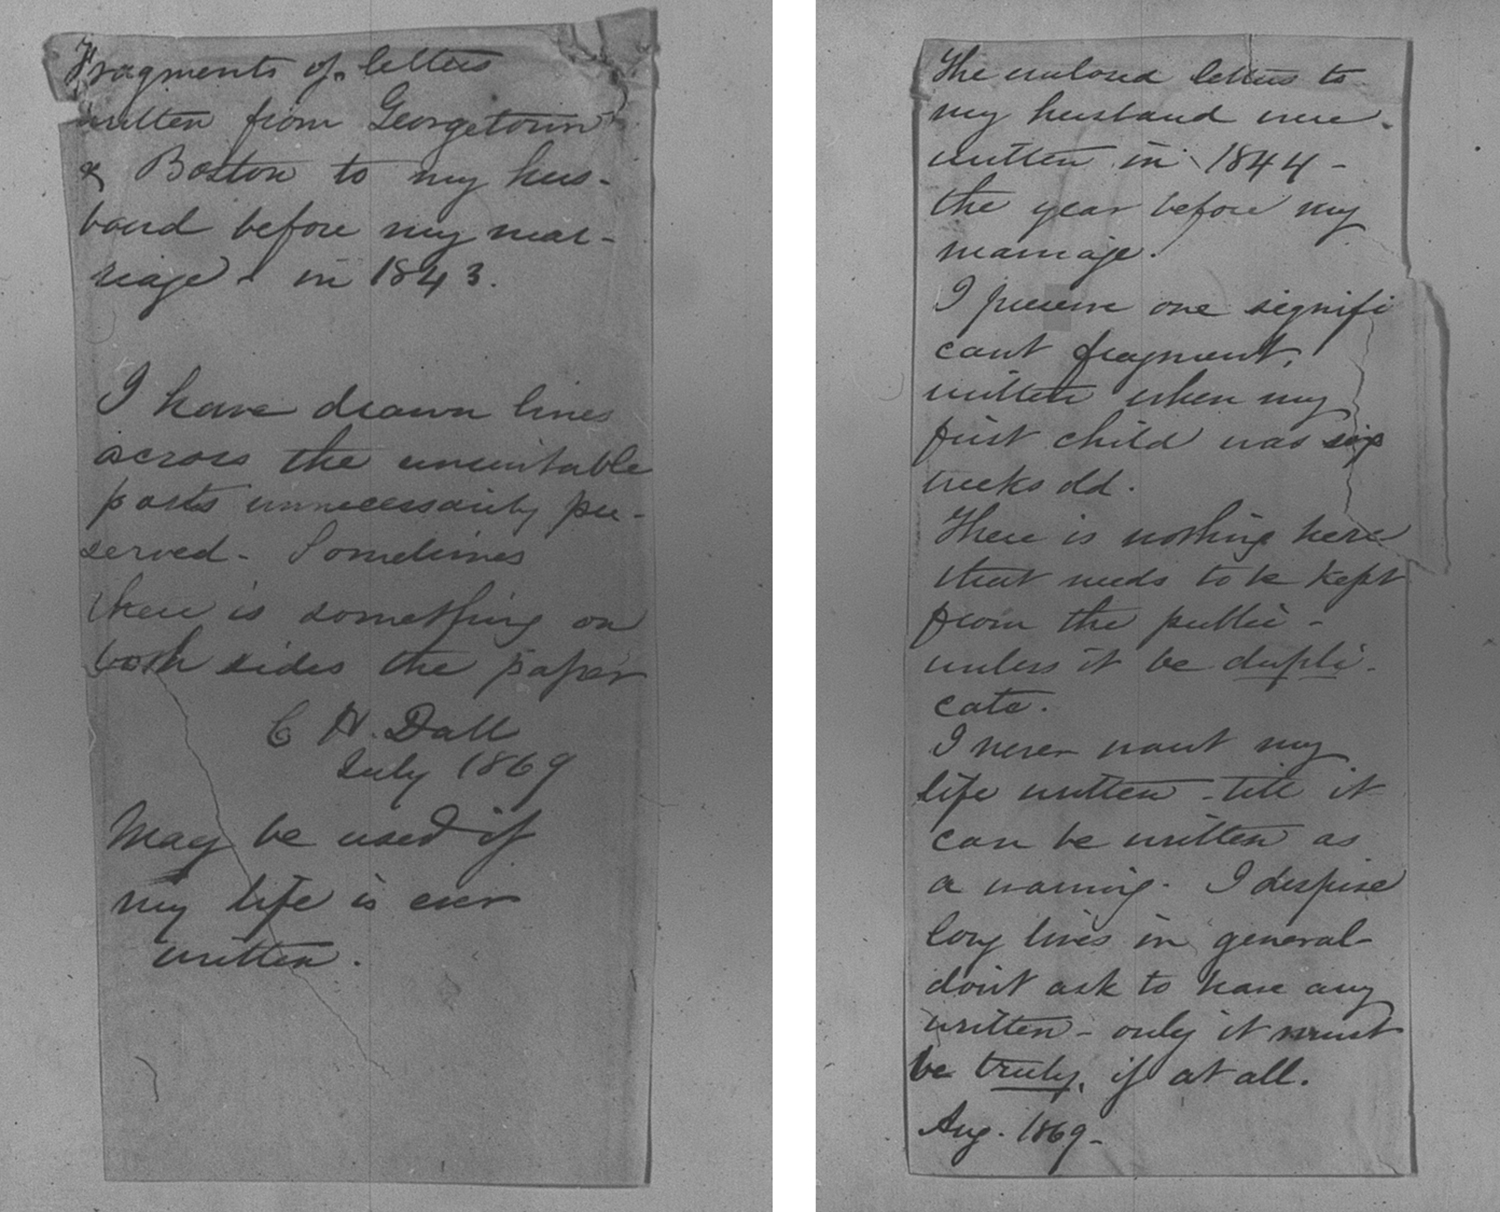 Fragments of letters
written from Georgetown
& Boston to my hus-
band before my mar-
riage - in 1843.
I have drawn lines
across the unsuitable
parts unnecessarily pre-
served - Sometimes
there is something on
both sides the paper
C H. Dall
July 1869
May be used if
my life is ever
written.
The letters to
my husband were
written in 1844 -
the year before my
marriage.
I preserve one signifi
cant fragment,
written when my
first child was six
weeks old.
There is nothing here
that needs to be kept
from the public -
unless it be dupli-
cate.
I never want my
life written - till it
can be written as
a warning. I despise
long lives in general -
don't ask to have any
written - only it must
be truly, if at all.
Aug. 1869 -